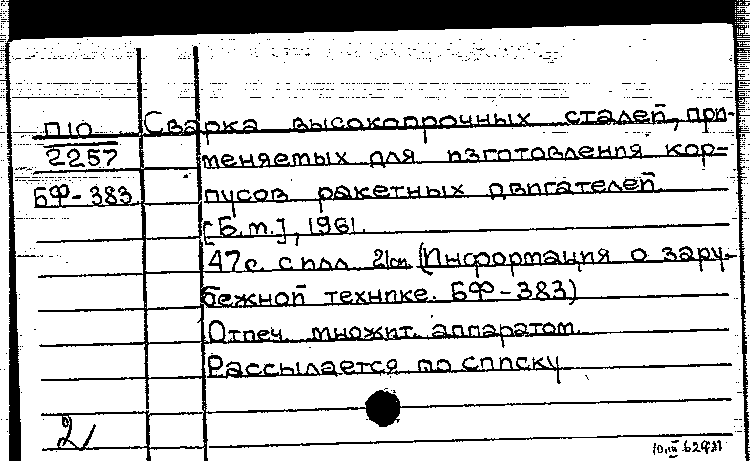 П10
2257
БФ-383
Сварка высокопрочных сталей, при-
меняемых для изготовления кор-
пусов ракетных двигателей.
[Б.м.], 1961.
47с. с илл. 21см. (Информация о зару-
бежной технике. БФ-383)
Отпеч. множит. аппаратом.
Рассылается по списку
2